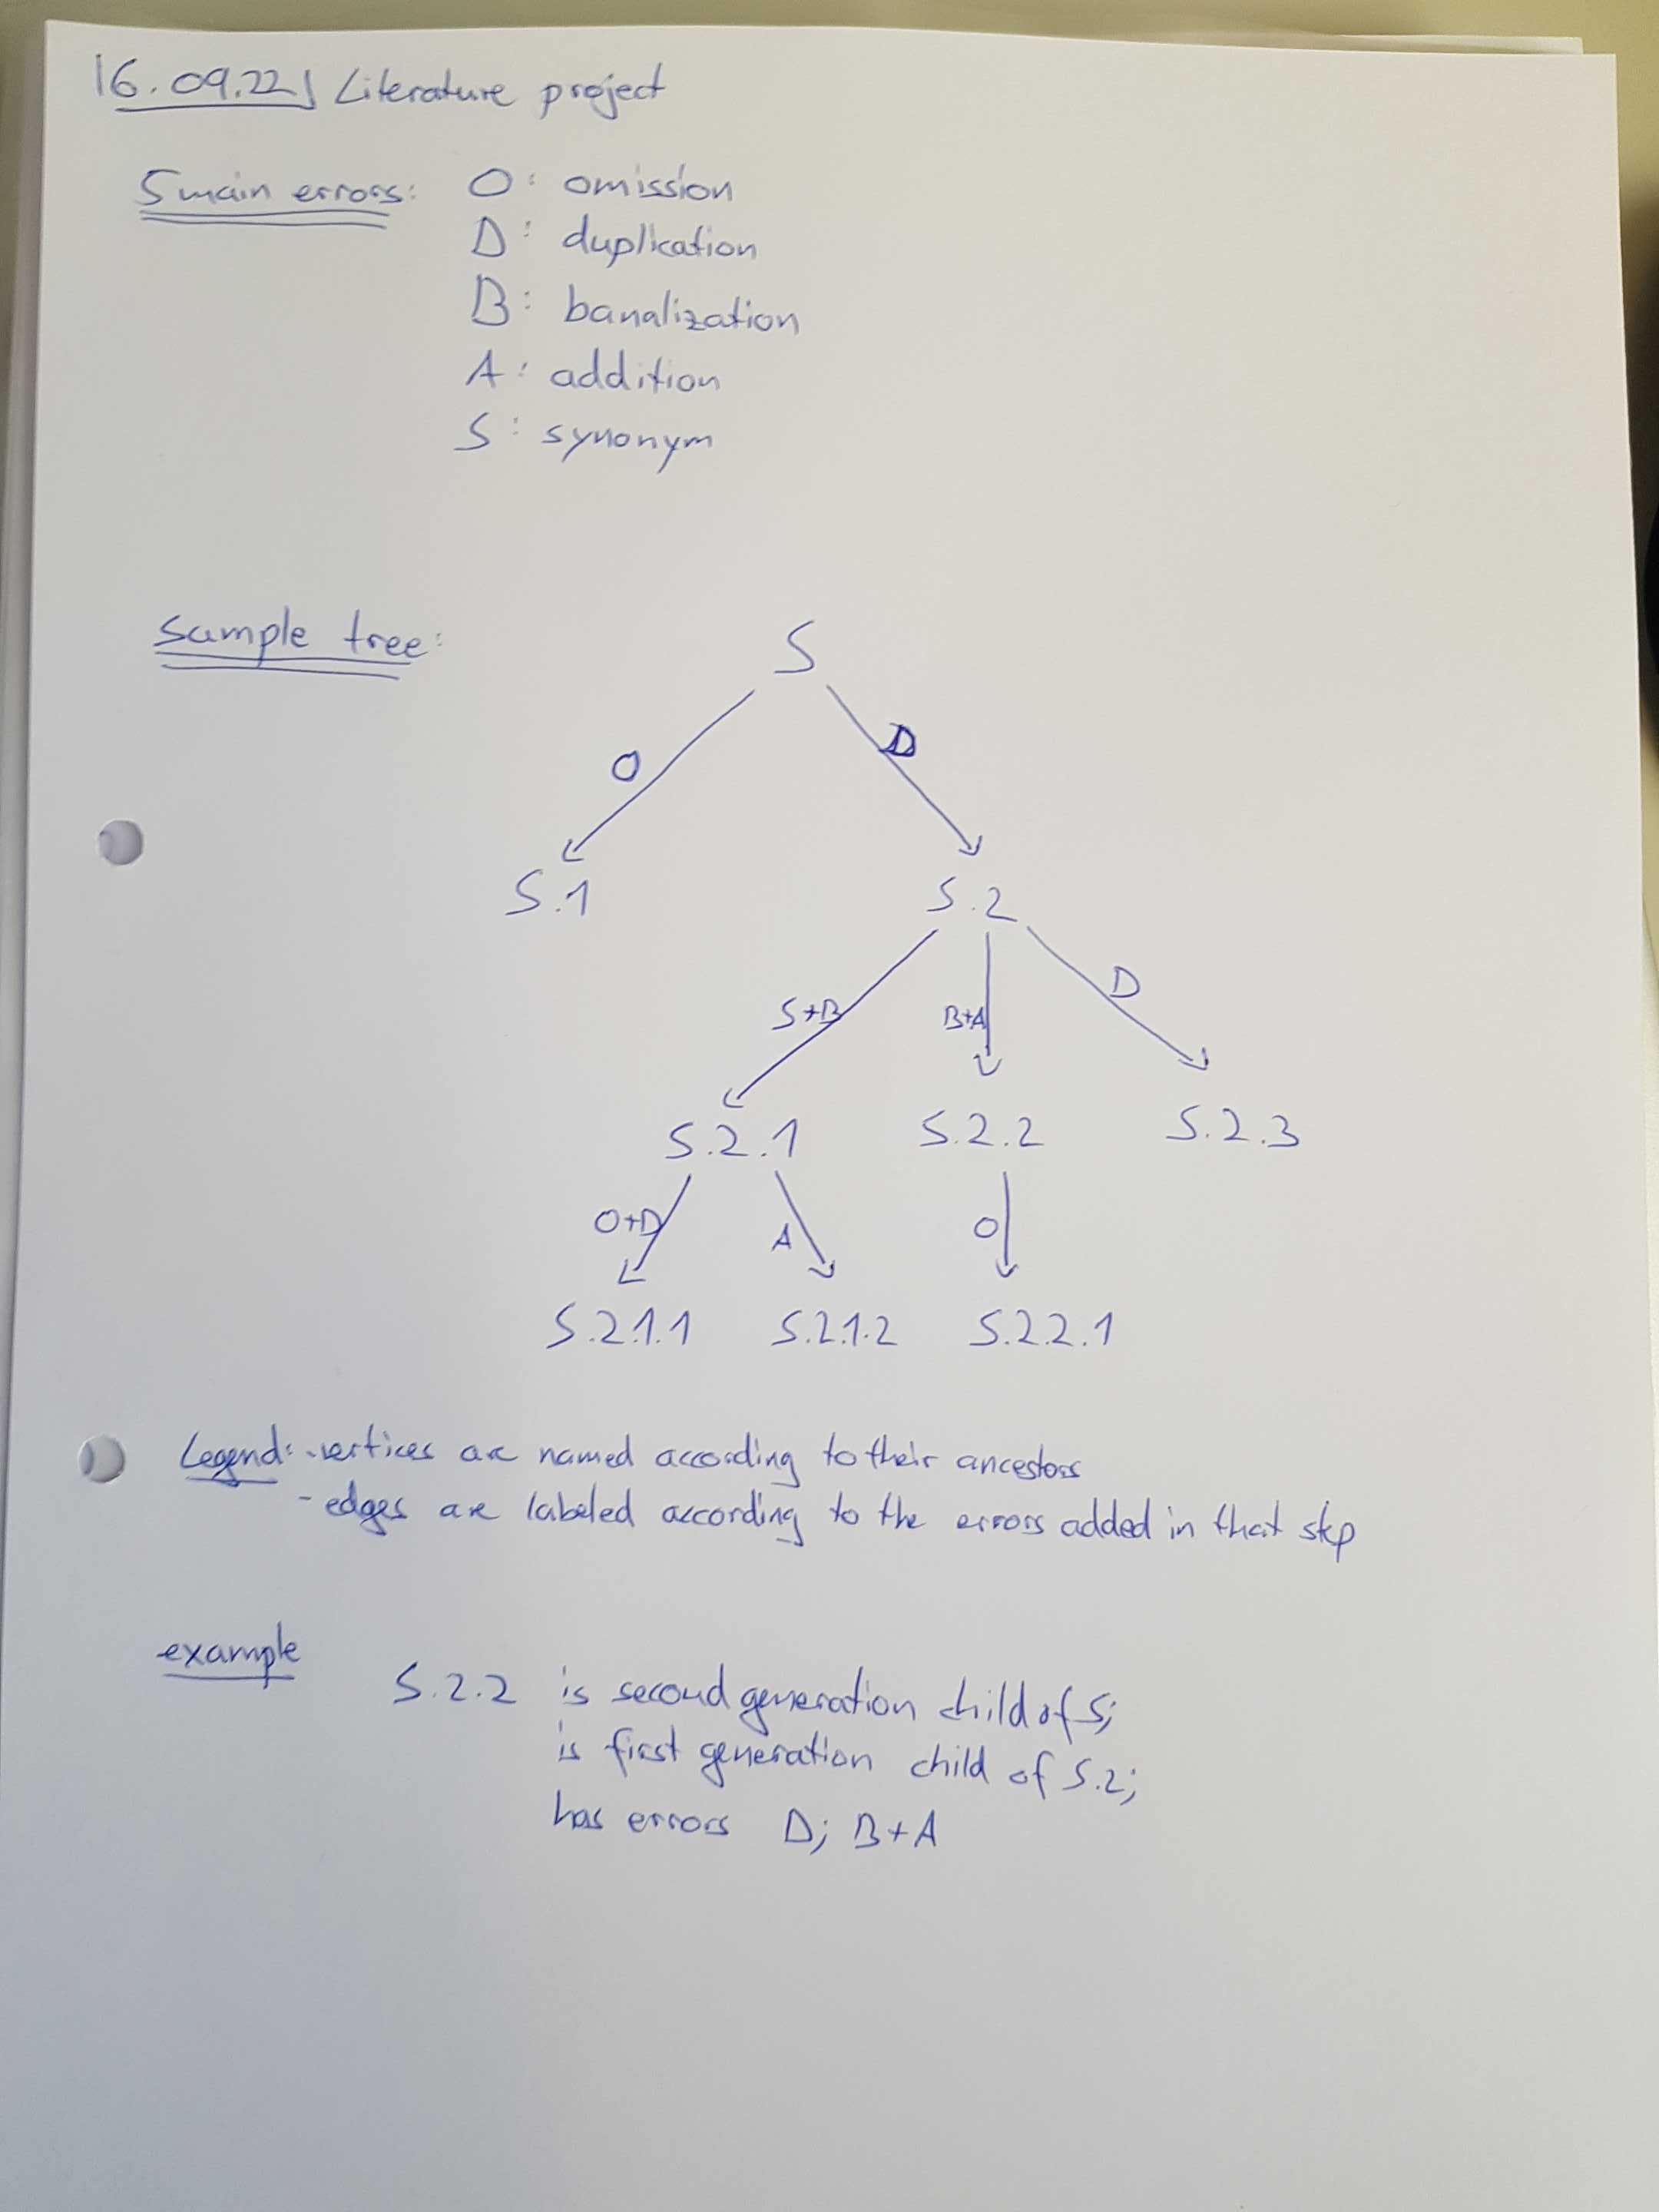 16.09.22 Literature project
5 main errors: O: omission
D: duplication
B: banalization
A: addition
S: synonym
sample tree:
S
O D
S.1 S.2
S+B B+A D
S.2.1 S.2.2 S.2.3
O+D A O
S.2.1.1 S.2.1.2 S.2.2.1
Legend: -vertices are named according to their ancestors
- edges are labeled according to the errors added in that step
example S.2.2 is second generation child of S;
is first generation child of S.2;
has errors D; B+A